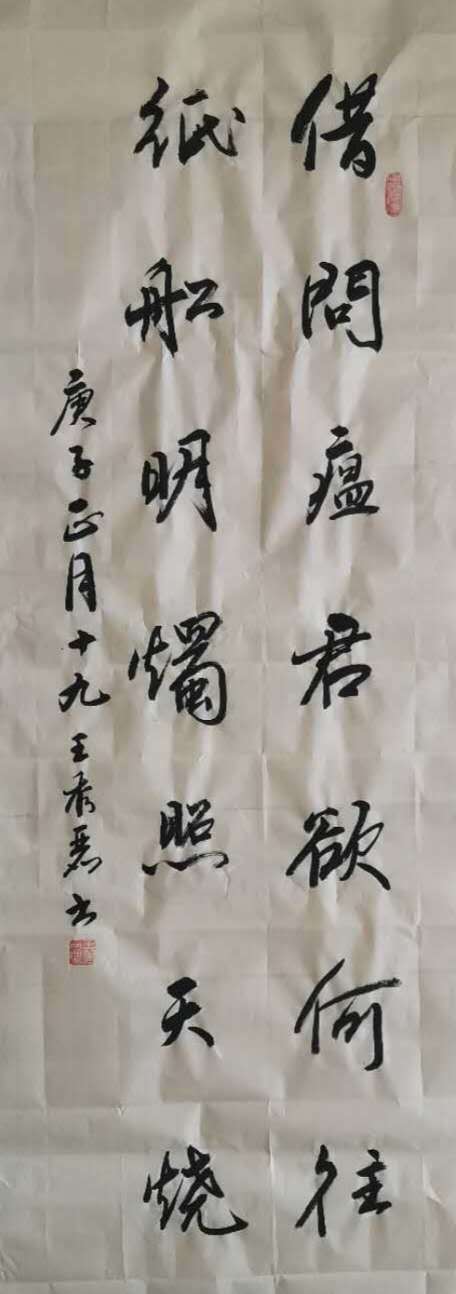 借問瘟君欲何往
紙船明燭照天燒
庚子正月十九王秀君书